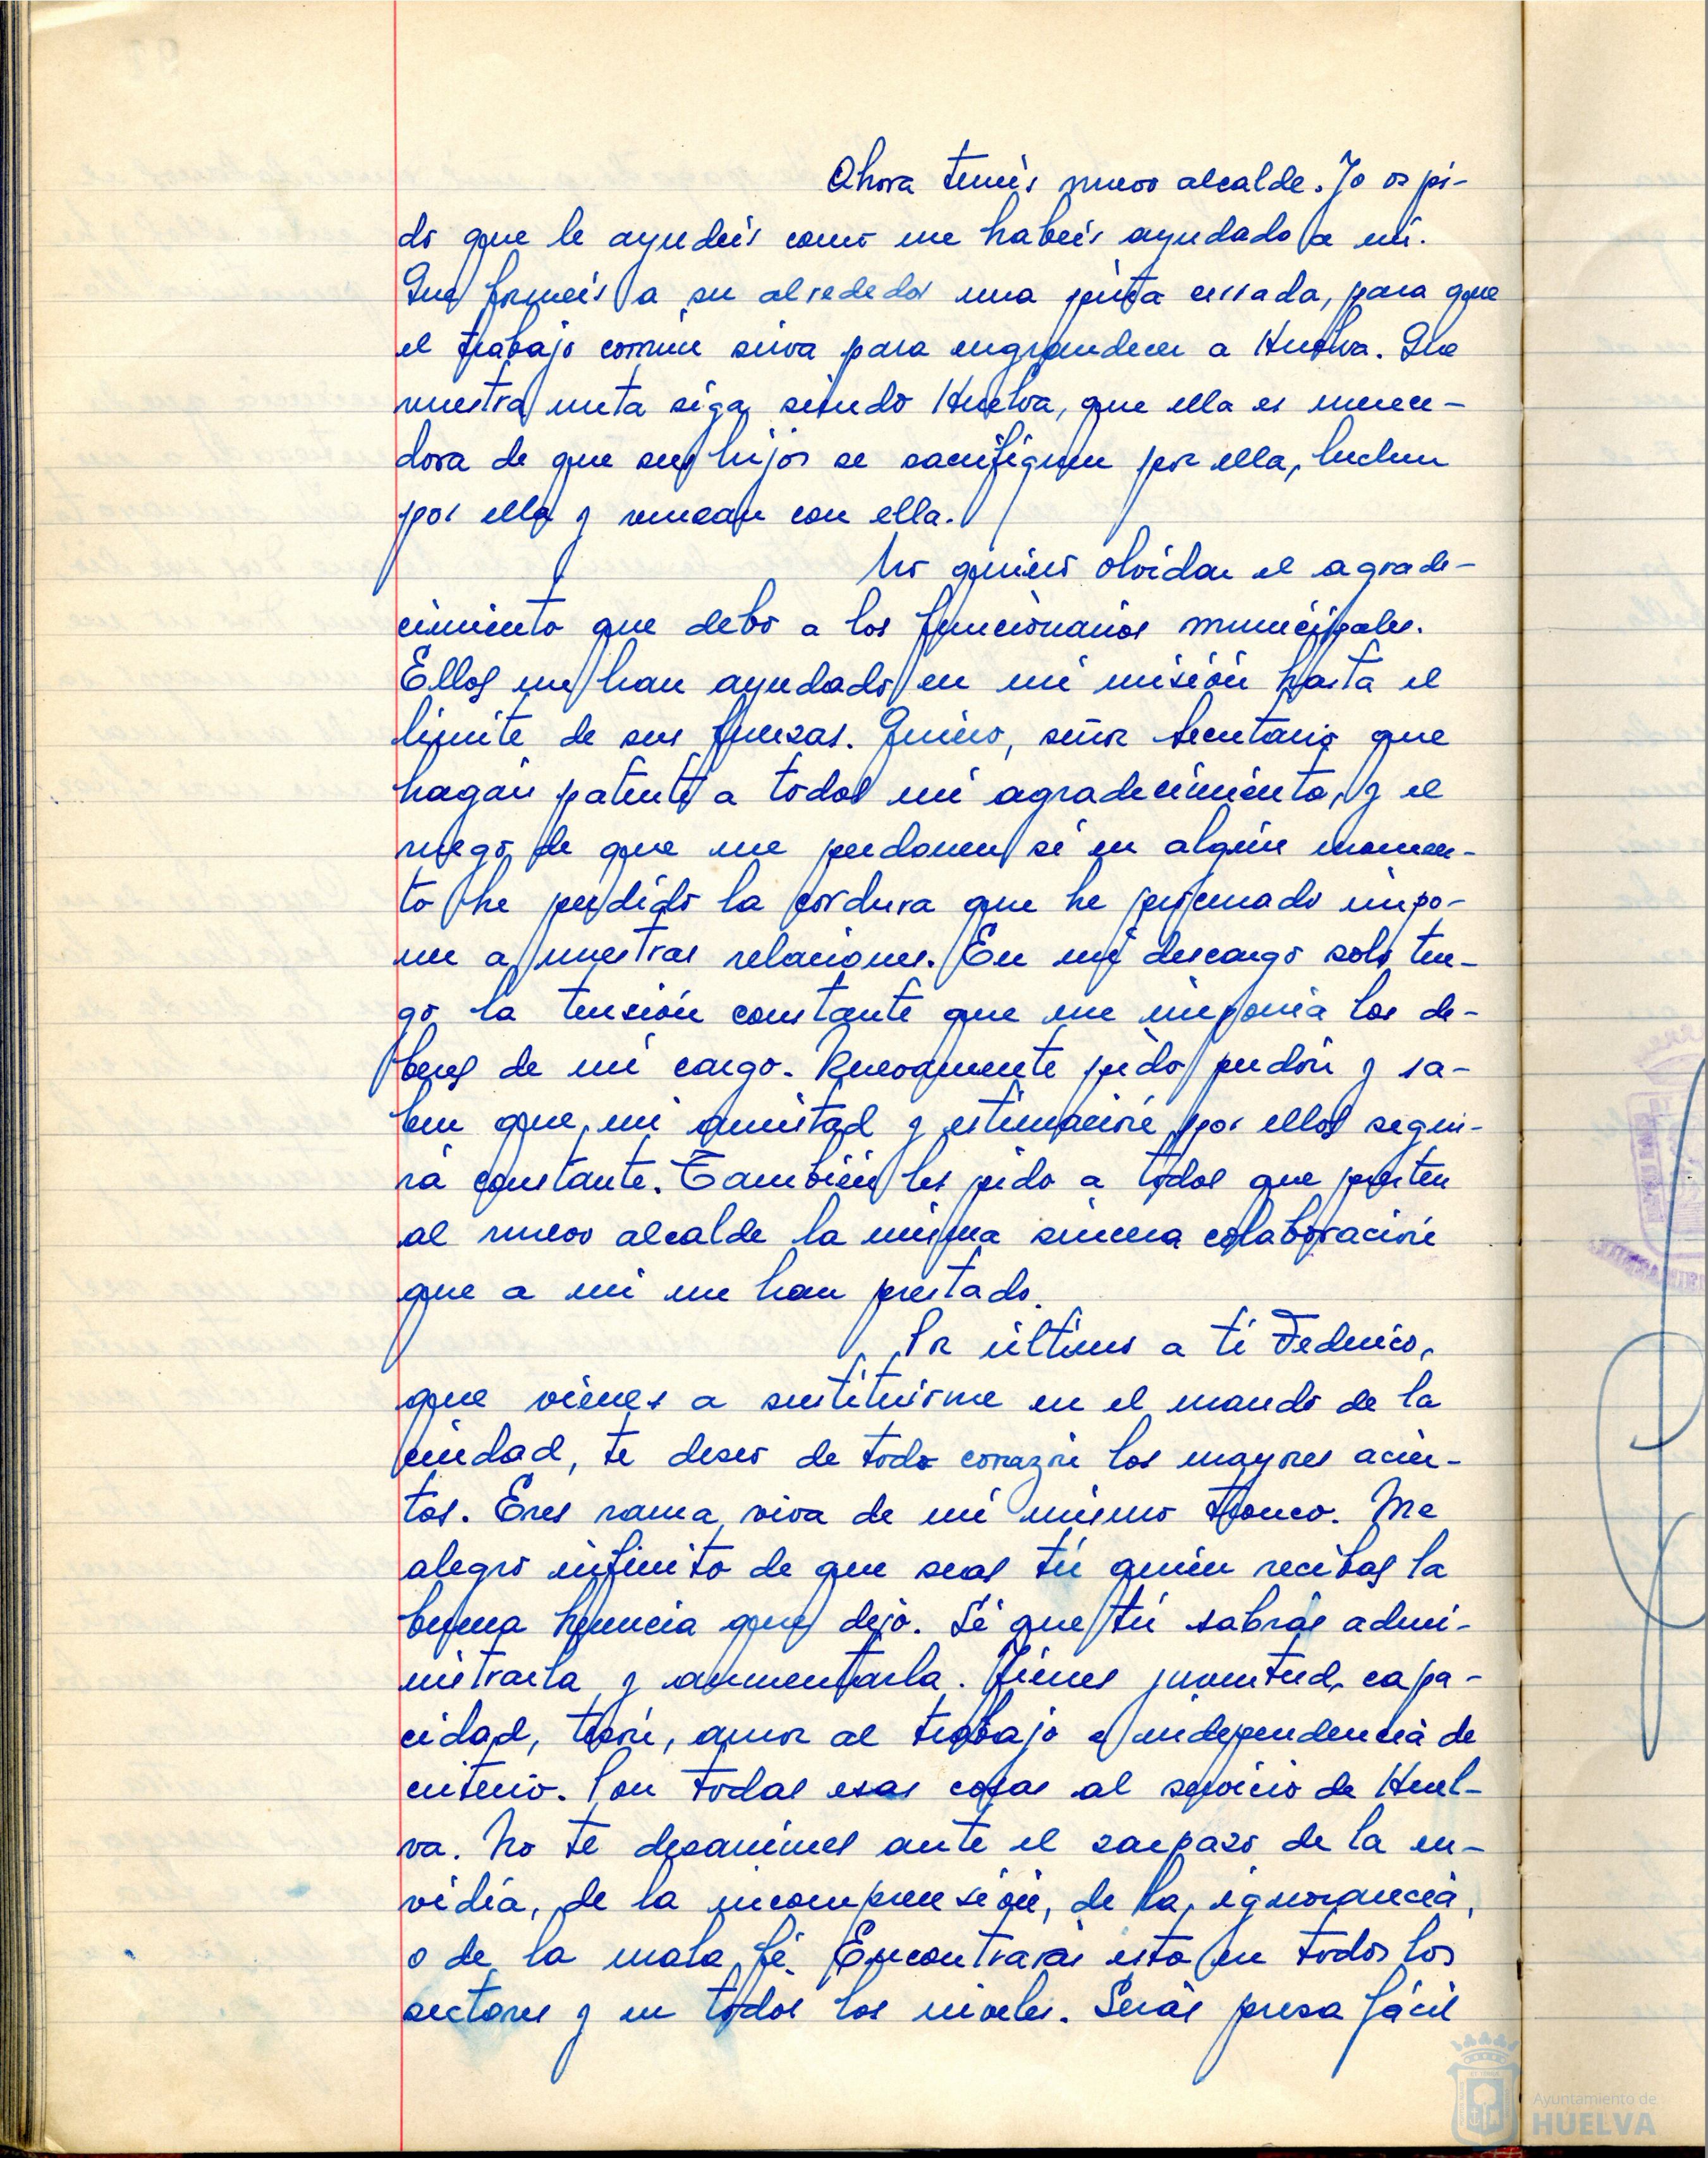 Ahora teneis nuevo alcalde. Yo os pi-
do que le ayudeis como me habeis ayudado a mi.
Que formeis a su alrededor una piña cerrada, para que
el trabajo común sirva para engrandecer a Huelva. Que
vuestra meta siga siendo Huelva, que ella es merece-
dora de que sus hijos se sacrifiquen por ella, luchen
por ella y venzan con ella.
No quiero olvidar el agrade-
cimiento que debo a los funcionarios municipales.
Ellos me han ayudado en mi misión hasta el
limite de sus fuerzas. Quiero, señor Secretario que
hagan patente a todos mi agradecimiento, y el
ruego de que me perdonen si en algún momen-
to he perdido la cordura que he procurado impo-
ner a nuestras relaciones. En mi descargo solo ten-
go la tensión constante que me imponía los de-
beres de mi cargo. Nuevamente pido perdón y sa-
ben que mi amistad y estimación por ellos segui-
rá constante. También les pido a todos que presten
al nuevo alcalde la misma sincera colaboración
que a mi me han prestado.
Por último a ti Federico,
que vienes a sustituirme en el mando de la
ciudad, te deseo de todo corazón los mayores acier-
tos. Eres rama viva de mi mismo tronco. Me
alegro infinito de que seas tú quien recibas la
buena herencia que dejo. Sé que tú sabrás admi-
nistrarla y aumentarla. Tienes juventud, capa-
cidad, tesón, amor al trabajo e independencia de
criterio. Pon todas esas cosas al servicio de Huel-
va. No te desanimes ante el zarpazo de la en-
vidia, de la incomprensión, de la ignorancia,
o de la mala fé. Encontrarás esto en todos los
sectores y en todos los niveles. Serás presa fácil
Ayuntamiento de
HUELVA